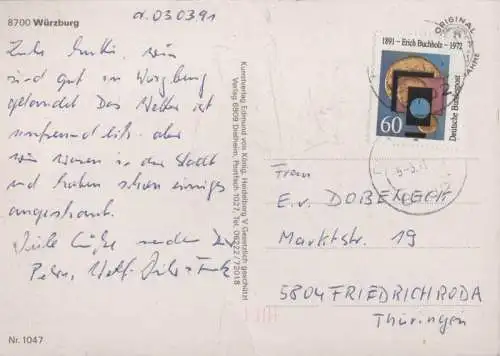 8700 Würzburg
d. 030391
Liebe Mutti, wir
sind gut in Würzburg
gelandet. Das Wetter ist
unfreundlich. aber
wir waren in der Stadt
und haben schon einiges
angeschaut.
Viele Grüße senden Dir
Nr. 1047
Kunstverlag Edmund von König, Heidelberg V Gesetzlich geschützt
Verlag 6909 Dielheim, Postfach 1027, Tel. 06222/72018
ORIGINAL
1891 – Erich Buchholz – 1972
Deutsche Bundespost
60
Frau
E.v. DOBENECK
Marktstr. 19
5804 FRIEDRICHRODA
Thüringen